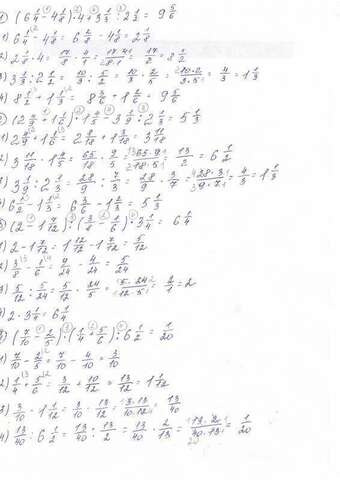 1) (6 1/4 - 4 1/8) · 4 + 3 1/3 : 2 1/2 = 9 5/6
1) 6 1/4 - 4 1/8 = 6 2/8 - 4 1/8 = 2 1/8
2) 2 1/8 · 4 = 17/8 · 4/1 = 17·4/8·1 = 17/2 = 8 1/2
3) 3 1/3 : 2 1/2 = 10/3 : 5/2 = 10/3 · 2/5 = 10·2/3·5 = 4/3 = 1 1/3
4) 8 1/2 + 1 1/3 = 8 3/6 + 1 2/6 = 9 5/6
1) 2 4/9 + 1 1/6 = 2 8/18 + 1 3/18 = 3 11/18
2) 3 11/18 · 1 4/5 = 65/18 · 9/5 = 65·9/18·5 = 13/2 = 6 1/2
3) 3 1/9 : 2 1/3 = 28/9 : 7/3 = 28/9 · 3/7 = 28·3/9·7 = 4/3 = 1 1/3
3) (2 - 1 7/12) : (3/8 - 1/6) · 3 1/4 = 6 1/4
1) 2 - 1 7/12 = 1 12/12 - 1 7/12 = 5/12
2) 3/8 - 1/6 = 9/24 - 4/24 = 5/24
3) 5/12 : 5/24 = 5/12 · 24/5 = 5·24/12·5 = 2/1 = 2
4) 2 · 3 1/4 = 6 1/4
4) (7/10 - 2/5) : (1/4 + 5/6) : 6 1/2 = 1/20
1) 7/10 - 2/5 = 7/10 - 4/10 = 3/10
2) 1/4 + 5/6 = 3/12 + 10/12 = 13/12 = 1 1/12
3) 3/10 · 1 1/12 = 3/10 · 13/12 = 3·13/10·12 = 13/40
4) 13/40 : 6 1/2 = 13/40 : 13/2 = 13/40 · 2/13 = 13·2/40·13 = 1/20